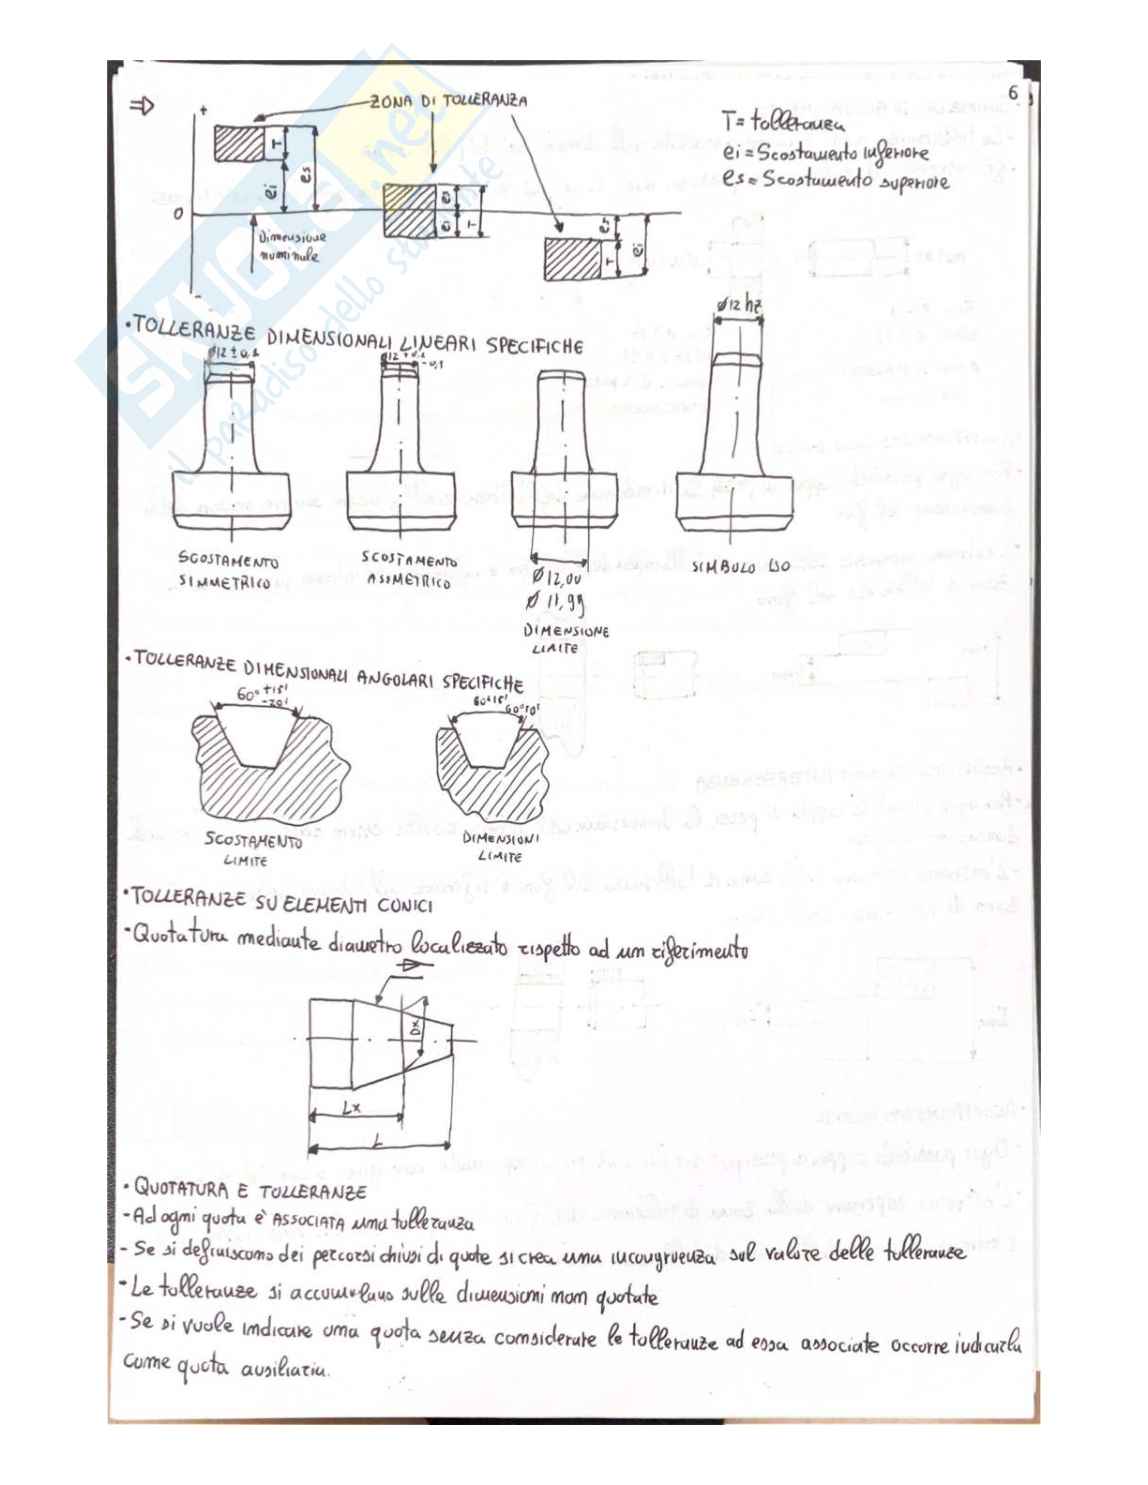 6
ZONA DI TOLLERANZA
+
T
es
ei
0
-
Dimensione
nominale
es
ei
T
es
T
ei
T= tolleranza
ei = Scostamento inferiore
es = Scostamento superiore
• TOLLERANZE DIMENSIONALI LINEARI SPECIFICHE
Ø12 ± 0,1
Ø12
-0,1
Ø12 h7
SCOSTAMENTO
SIMMETRICO
SCOSTAMENTO
ASIMETRICO
Ø 12,00
Ø 11,99
DIMENSIONE
LIMITE
SIMBOLO ISO
• TOLLERANZE DIMENSIONALI ANGOLARI SPECIFICHE
60° +15'
60°15'
SCOSTAMENTO
LIMITE
DIMENSIONI
LIMITE
• TOLLERANZE SU ELEMENTI CONICI
- Quotatura mediante diametro localizzato rispetto ad un riferimento
Dx
Lx
L
• QUOTATURA E TOLLERANZE
- Ad ogni quota è ASSOCIATA una tolleranza
- Se si definiscono dei percorsi chiusi di quote si crea una incongruenza sul valore delle tolleranze
- Le tolleranze si accumulano sulle dimensioni non quotate
- Se si vuole indicare una quota senza considerare le tolleranze ad essa associate occorre indicarla
come quota ausiliaria.
SKUOLA.net
il paradiso dello studente